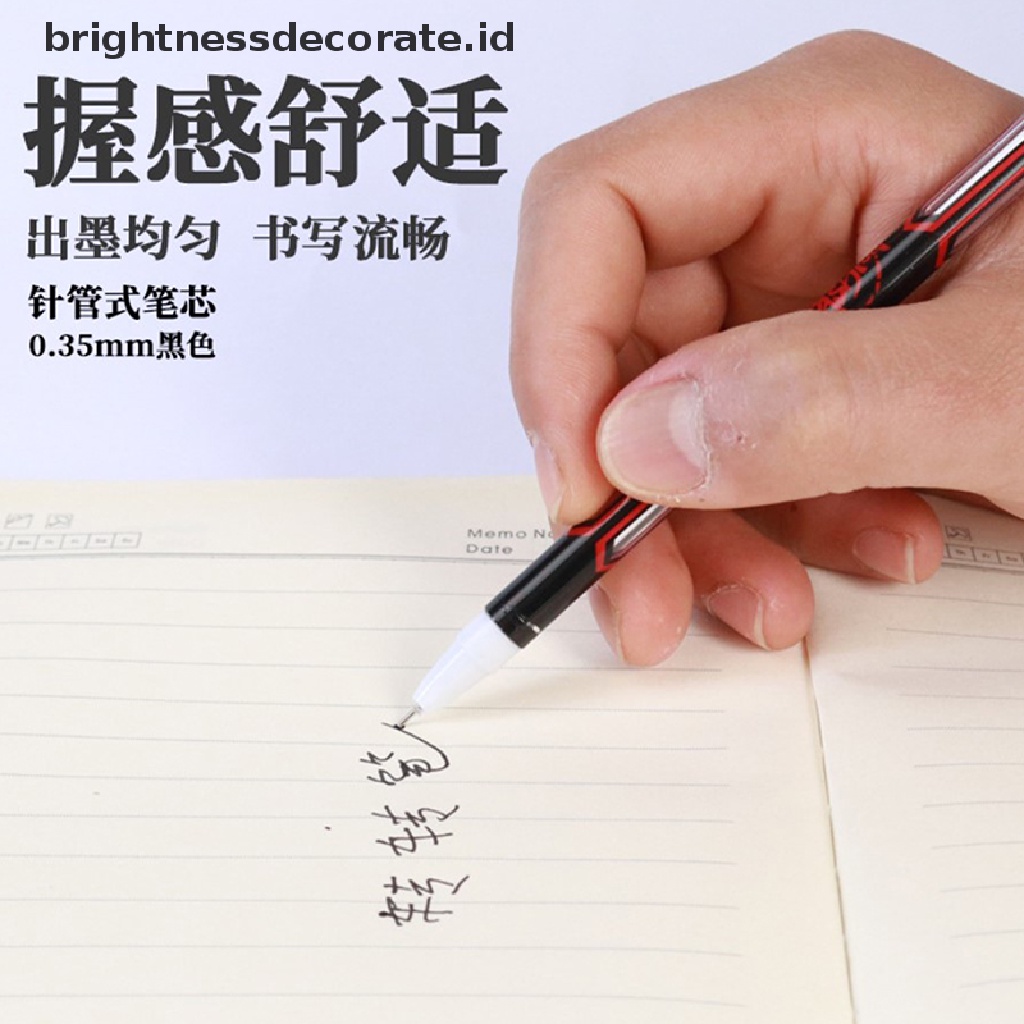 brightnessdecorate.id
握感舒适
出墨均匀 书写流畅
针管式笔芯
0.35mm黑色
Memo No
Date
转转笔